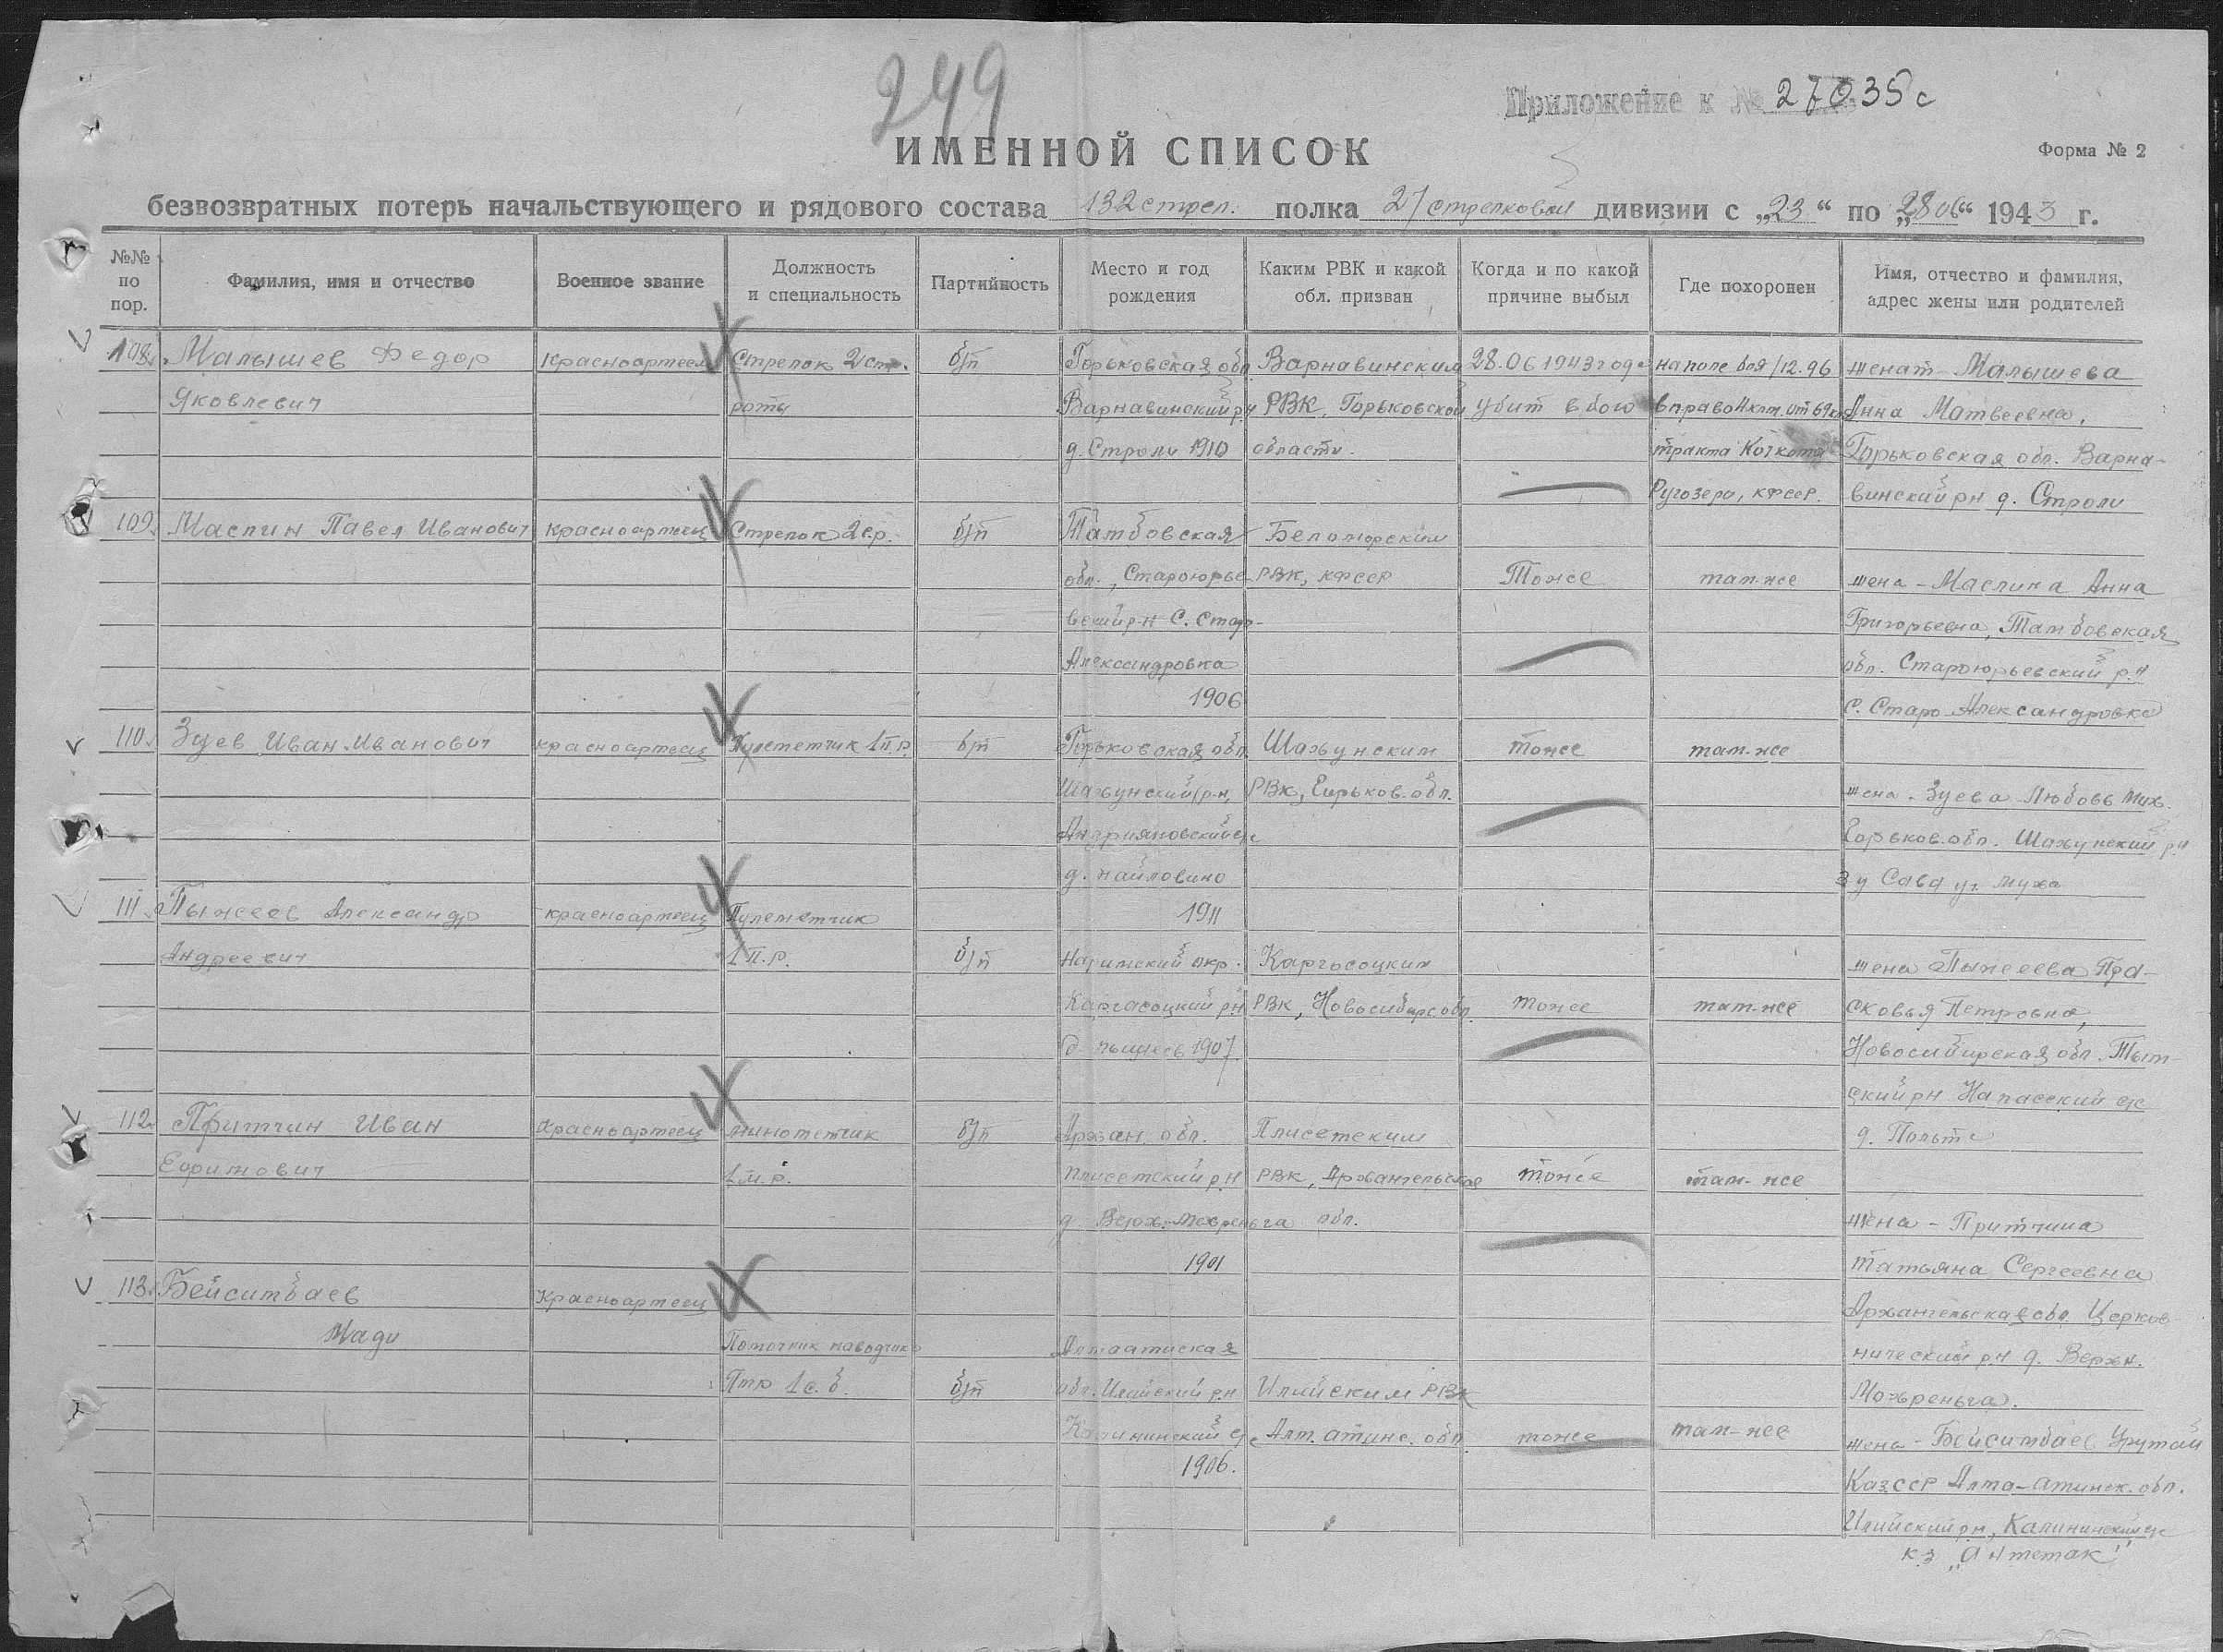 249
Приложение к № 27035с
ИМЕННОЙ СПИСОК
Форма № 2
безвозвратных потерь начальствующего и рядового состава 132 стрел. полка 27 стрелковой дивизии с „23“ по „28 06“ 1943 г.
№№ по пор.
Фамилия, имя и отчество
Военное звание
Должность и специальность
Партийность
Место и год рождения
Каким РВК и какой обл. призван
Когда и по какой причине выбыл
Где похоронен
Имя, отчество и фамилия, адрес жены или родителей
108. Малышев Федор красноармеец Стрелок 2 стр. б/п Горьковская обл Варнавинским 28.06 1943 года на поле боя /12.96 женат Малышева
Яковлевич роты Варнавинский р-н РВК, Горьковской убит в бою вправо 4 клм. от 69 км Анна Матвеевна,
д. Строли 1910 области. тракта Кочкома Горьковская обл. Варна-
Ругозеро, КФССР. винский рн д. Строли
109. Маслин Павел Иванович красноармеец Стрелок 2 с.р. б/п Тамбовская Беломорским
обл., Староюрье- РВК, КФССР Тоже там-же жена - Маслина Анна
вский р-н С. Старо- Григорьевна, Тамбовская
Александровка обл. Староюрьевский р.н
1906 С. Старо Александровка
110. Зуев Иван Иванович красноармеец Пулеметчик 1 п.р. б/п Горьковская обл. Шахунским тоже там-же
Шахунский р-н, РВК, Горьков. обл. жена - Зуева Любовь Мих.
Андрияновский с/с Горьков. обл. Шахунский р.н
д. 
1911
111. Пыжеев Александр красноармеец Пулеметчик
Андреевич 1 п.р. б/п Нарымский окр. Каргосоцким жена Пыжеева Пра-
Каргасоцкий р.н РВК, Новосибирс обл. тоже там-же сковья Петровна,
1907 Новосибирская обл. Тым-
ский рн Напасский с/с
112. Притчин Иван красноармеец минометчик б/п Архан. обл. Плисетским д. Польта
Ефимович 1 м.р. Плисетский р.н РВК, Архангельская тоже там-же
д. Верх. Мехреньга обл. жена - Притчина
1901 Татьяна Сергеевна
113. Бейситбаев Красноармеец Архангельская обл. Церков-
Мади Помочник наводчика Алмаатиская нический рн д. Верхн.
Птр 1 с.б. б/п обл. Илийский р.н Илийским РВК Мохреньга.
Калининский с/с Алм. атинс. обл тоже там-же жена - Бейситбаев
1906. КазССР Алма-Атинск. обл.
Илийский рн, Калининский с/с
к-з